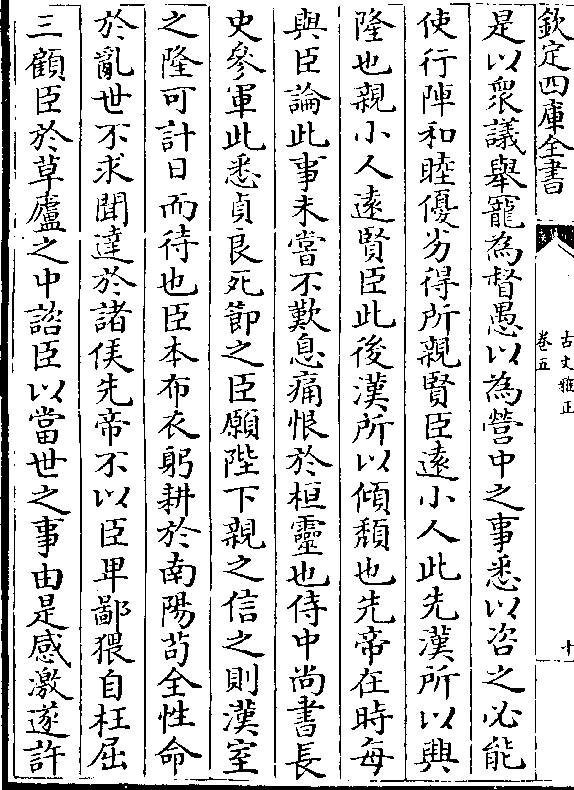 欽定四庫全書
古文雅正
卷五
十
是以衆議舉寵為督愚以為營中之事悉以咨之必能
使行陣和睦優劣得所親賢臣遠小人此先漢所以興
隆也親小人遠賢臣此後漢所以傾頹也先帝在時每
與臣論此事未嘗不歎息痛恨於桓靈也侍中尚書長
史參軍此悉貞良死節之臣願陛下親之信之則漢室
之隆可計日而待也臣本布衣躬耕於南陽苟全性命
於亂世不求聞達於諸侯先帝不以臣卑鄙猥自枉屈
三顧臣於草廬之中諮臣以當世之事由是感激遂許